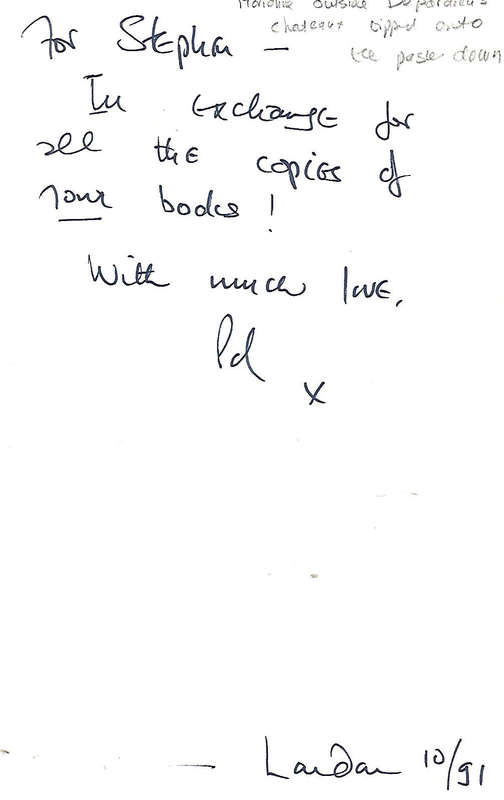 outside Depardieu's
chateaux tipped onto
the paste down
For Stephen —
In exchange for
all the copies of
your books!
With much love,
Pd
x
— London 10/91